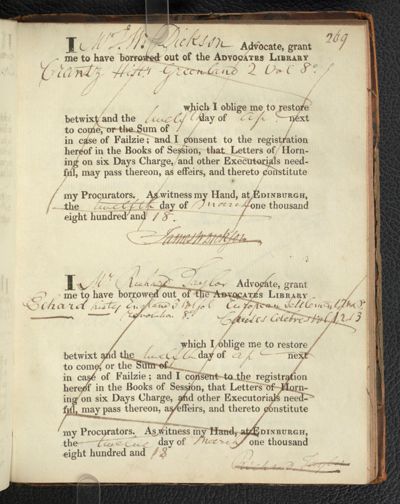 269
I Mr J. W. Dickson Advocate, grant
me to have borrowed out of the ADVOCATES LIBRARY
Crantz Histy Greenland 2 Vol 8o
which I oblige me to restore
betwixt and the twelfth day of Sep next
to come, or the Sum of
in case of Failzie; and I consent to the registration
hereof in the Books of Session, that Letters of Horn-
ing on six Days Charge, and other Executorials need-
ful, may pass thereon, as effeirs, and thereto constitute
my Procurators. As witness my Hand, at EDINBURGH,
the twelfth day of March one thousand
eight hundred and 18.
I Mr Richard Taylor Advocate, grant
me to have borrowed out of the ADVOCATES LIBRARY
Echard histy England 3 Vol European Settlements
Revolution 8o Causes Celebres Vol 12 13
which I oblige me to restore
betwixt and the twelfth day of Sep next
to come, or the Sum of
in case of Failzie; and I consent to the registration
hereof in the Books of Session, that Letters of Horn-
ing on six Days Charge, and other Executorials need-
ful, may pass thereon, as effeirs, and thereto constitute
my Procurators. As witness my Hand, at EDINBURGH,
the day of March one thousand
eight hundred and 18
Richard Taylor